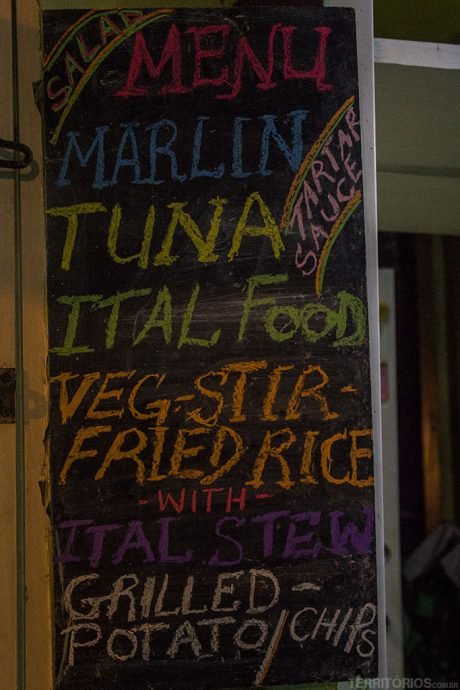 SALAD
MENU
MARLIN
TARTAR
SAUCE
TUNA
ITAL FOOD
VEG-STIR-
FRIED RICE
-WITH-
ITAL STEW
GRILLED-
POTATO/CHIPS
TERRITÓRIOS.COM.BR